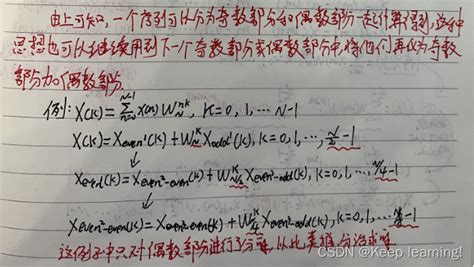 由上可知,一个序列可以分为奇数部分和偶数部分一起计算得到,这种
思想也可以继续用到下一个奇数部分或偶数部分中,将他们再次分为奇数
部分加偶数部分.
例: X(K) = Σ_{n=0}^{N-1} x(n) W_N^{nk}, K=0, 1, … N-1
X(K) = X_even¹(K) + W_N^K X_odd¹(K), K=0, 1, …, N/2 -1
↓
X_even¹(K) = X_even²-even(K) + W_{N/2}^K X_even²-odd(K), K=0, 1, … N/4 -1
↓
X_even²-even(K) = X_even³-even(K) + W_{N/4}^K X_even³-odd(K), K=0, 1, … N/8 -1
这例子中只对偶数部分进行了分解,以此类推,分治求解
CSDN @Keep learning!